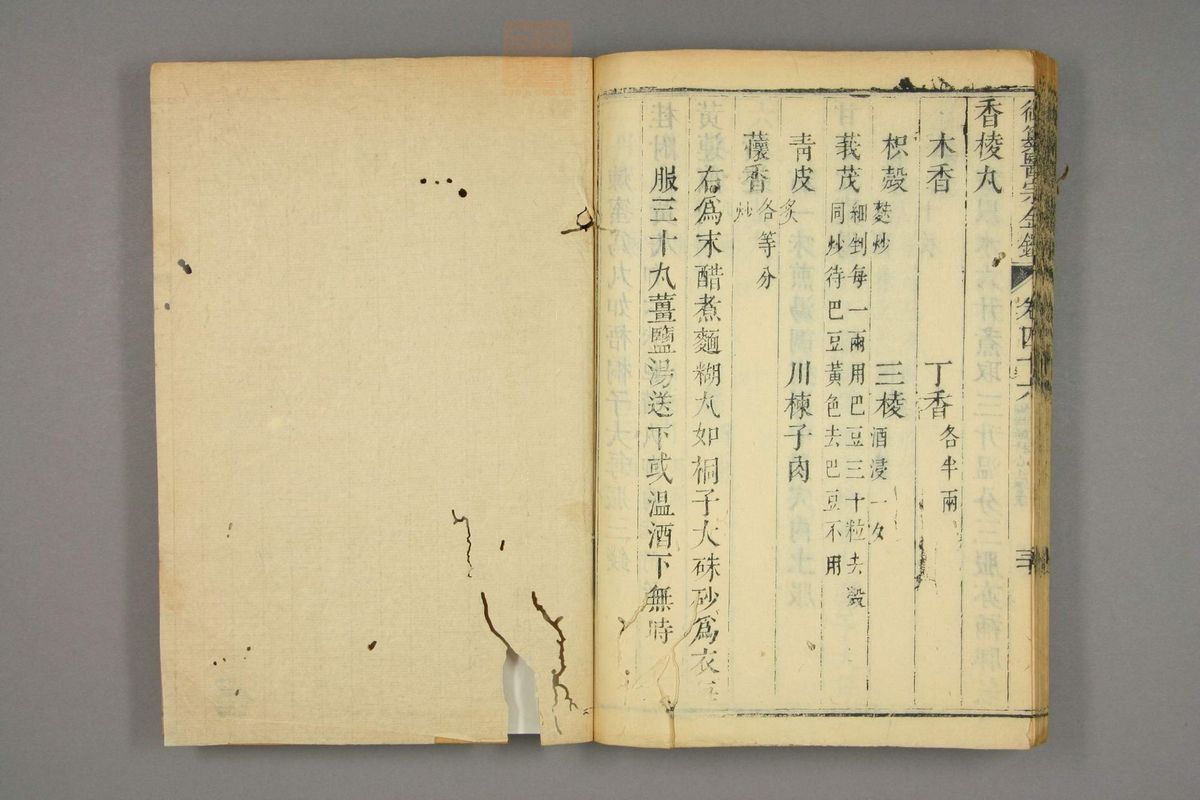 御纂醫宗金鑑 卷四十六
香棱丸
木香 丁香各半兩
枳殼麩炒 三棱酒浸一夕
莪茂細剉每一兩用巴豆三十粒去殼同炒待巴豆黃色去巴豆不用
青皮炙 川楝子肉
蘹香炒各等分
右爲末醋煮麵糊丸如桐子大硃砂爲衣每
服三十丸薑鹽湯送下或温酒下無時